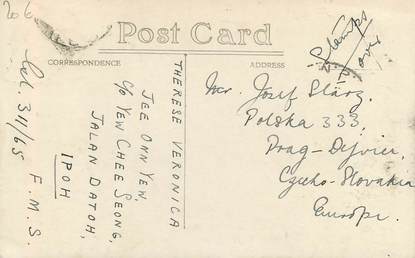 206
Post Card
CORRESPONDENCE
ADDRESS
Stamps
over
THERESE VERONICA
JEE ONN YEW,
c/o YEW CHEE SEONG,
JALAN DATOH,
IPOH
F. M. S.
311/65
Mr. Josef Stárz.
Polska 333,
Prag - Dejvice,
Czecho-Slovakia
Europe.